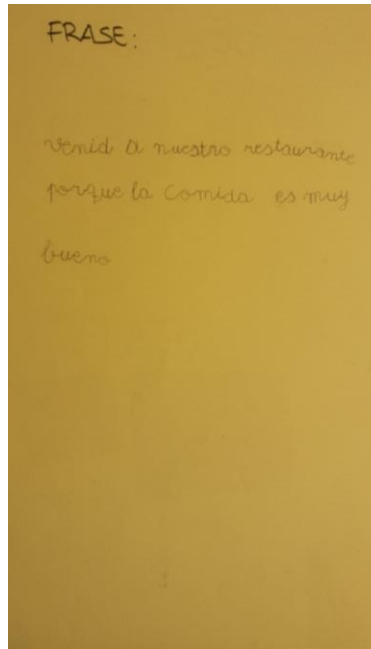 FRASE:
venid a nuestro restaurante
porque la comida es muy
bueno